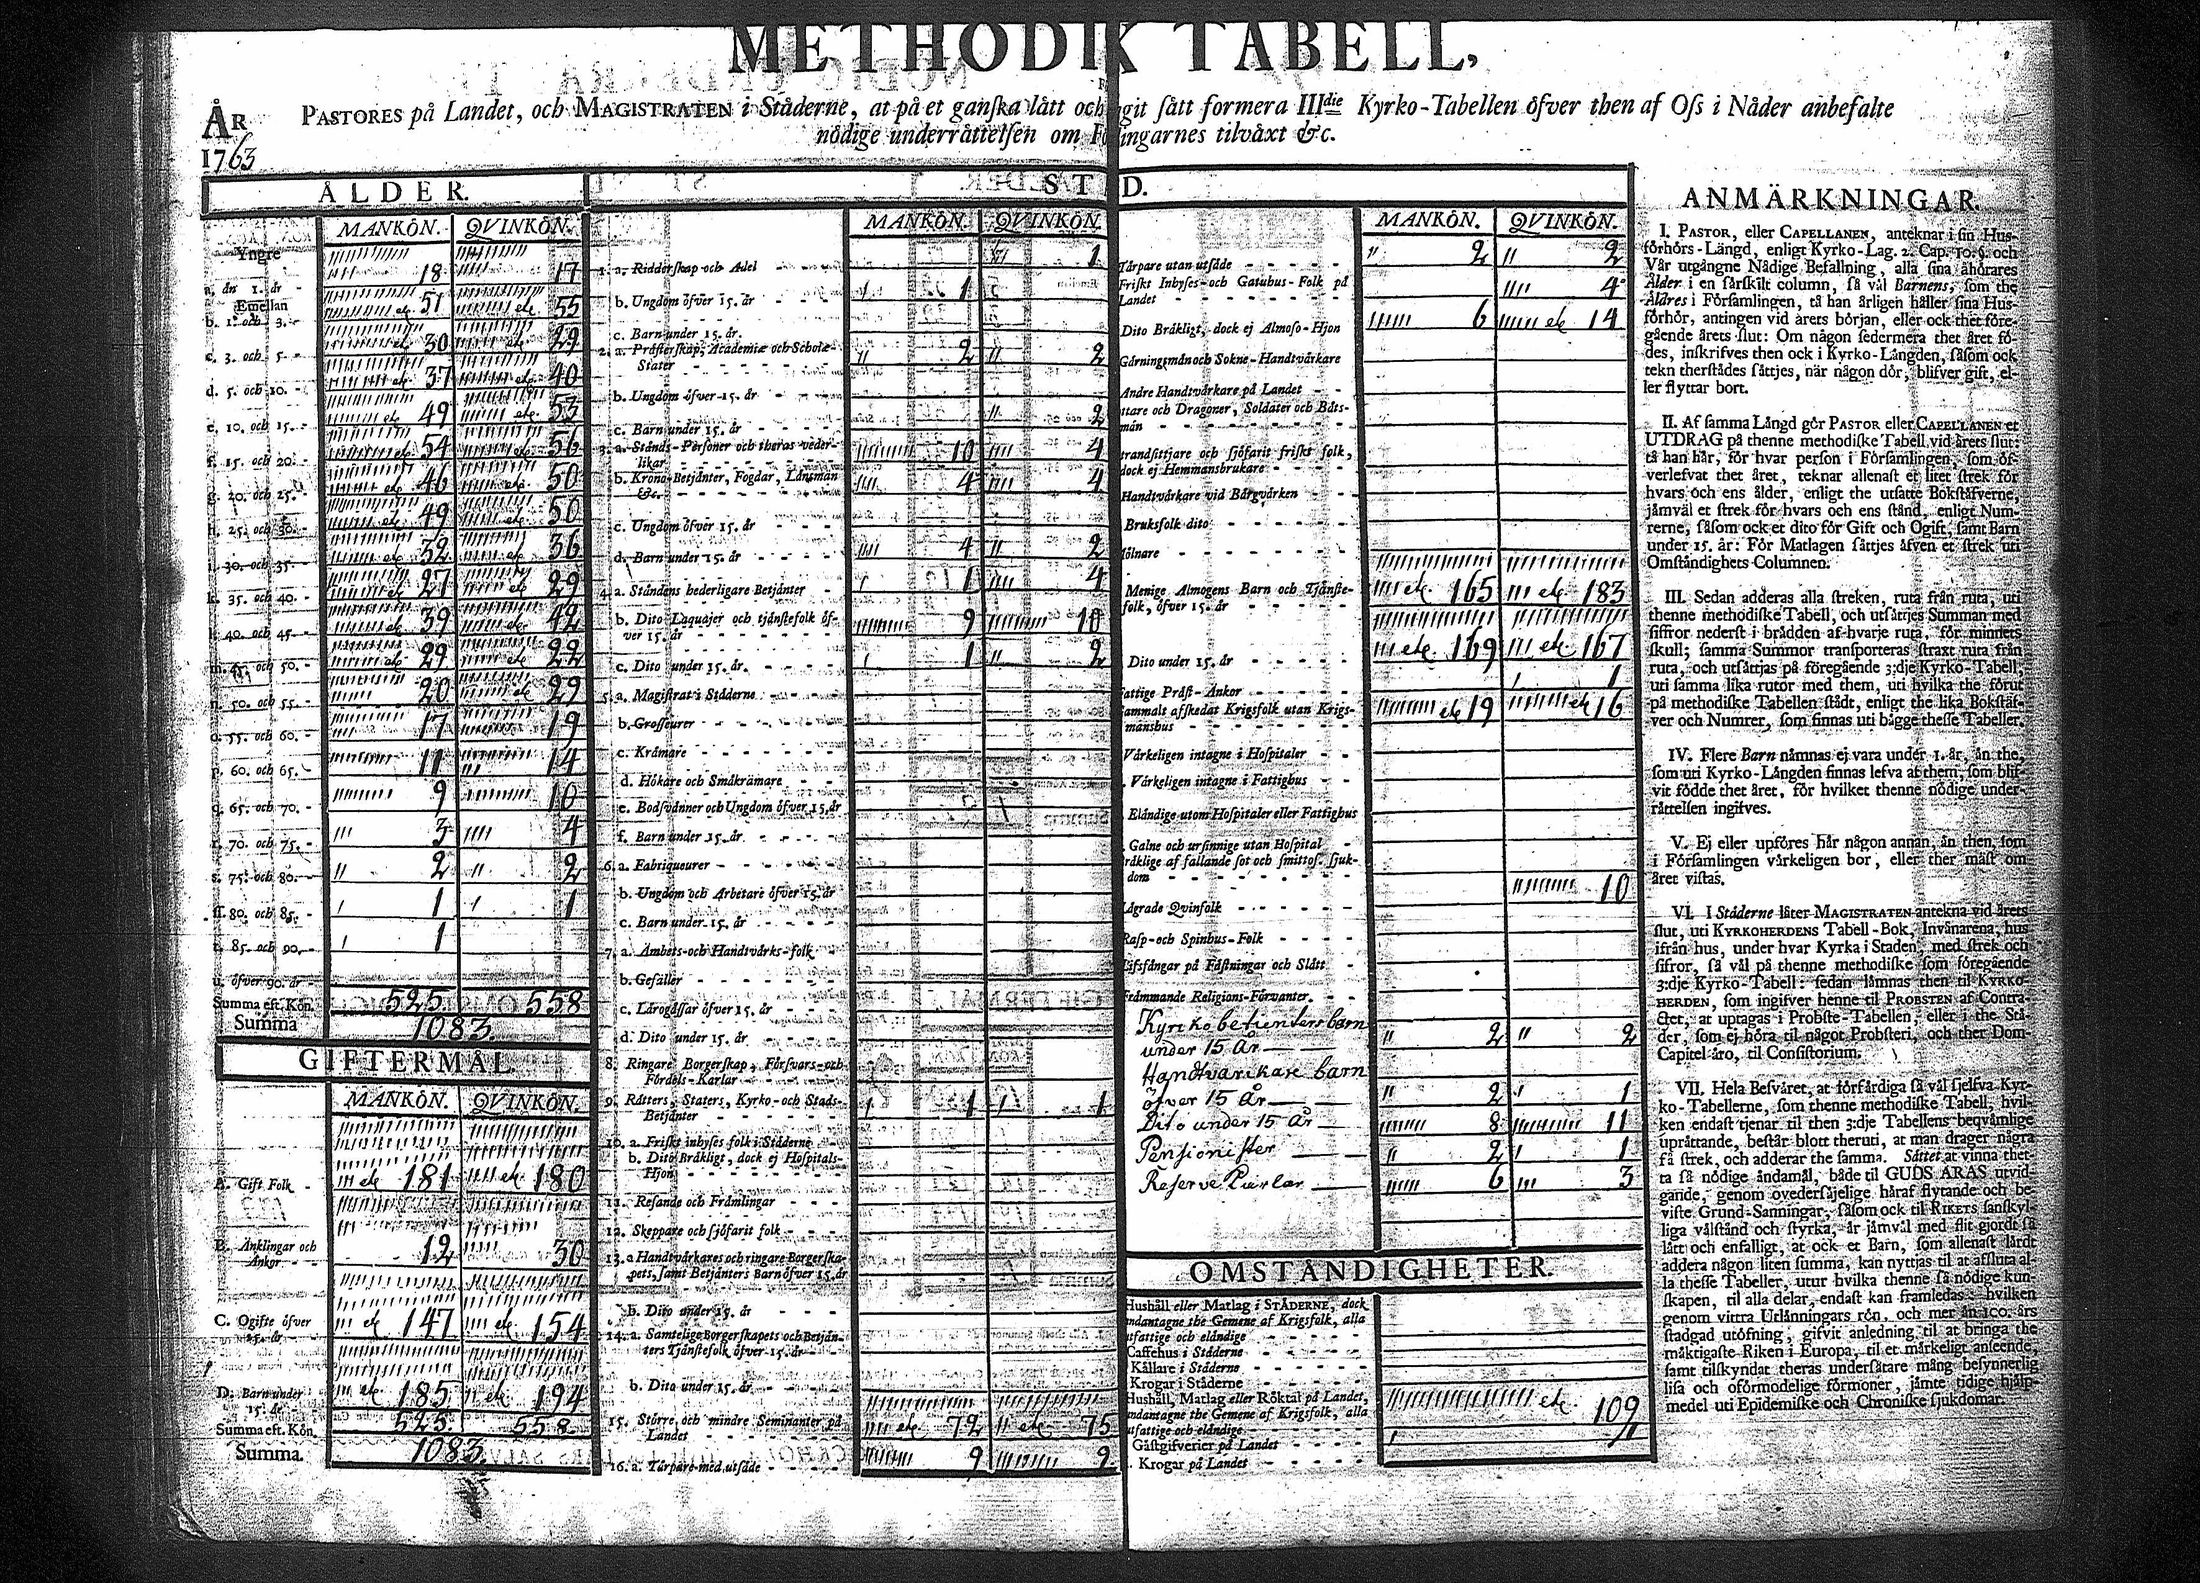 METHODIK TABELL,
ÅR
1763
PASTORES på Landet, och MAGISTRATEN i Städerne, at på et ganska lätt och sätt formera IIIdie Kyrko-Tabellen öfver then af Oss i Nåder anbefalte
nödige underrättelsen om tilväxt &c.
ÅLDER.
MANKÖN. QVINKÖN.
Yngre
än 1. år - 18 17
Emellan
b. 1. och 3. - etc 51 etc 55
c. 3. och 5 - etc 30 etc 29
d. 5. och 10. - etc 37 etc 40
e. 10. och 15. - etc 49 etc 53
f. 15. och 20. - etc 54 etc 56
g. 20. och 25. - etc 46 etc 50
h. 25. och 30. - etc 49 etc 50
i. 30. och 35. - etc 32 etc 36
k. 35. och 40. - etc 27 etc 29
l. 40. och 45. - etc 39 etc 42
m. 45. och 50. - etc 29 etc 22
n. 50. och 55. - 20 etc 29
o. 55. och 60. - 17 19
p. 60. och 65. - 11 14
q. 65. och 70. - 9 10
r. 70. och 75. - 3 4
s. 75. och 80. - 2 2
ſſ. 80. och 85. - 1 1
t. 85. och 90. - 1
u. öfver 90. år -
Summa eft. Kön. 525 558
Summa 1083.
GIFTERMÅL
MANKÖN. QVINKÖN.
A. Gift Folk - etc 181 etc 180
B. Änklingar och
Änkor - 12 30
C. Ogifte öfver
15. år - etc 147 etc 154
D. Barn under
15. år. etc 185 etc 194
Summa eft. Kön. 525. 558.
Summa. 1083.
MANKÖN. QVINKÖN.
1. a. Ridderskap och Adel - - - - 1
b. Ungdom öfver 15. år - - - - 1
c. Barn under 15. år.
2. a. Prästerskap, Academiæ och Scholæ-
Stater - - - - 2 2
b. Ungdom öfver 15. år - - -
c. Barn under 15. år - - - 2
3. a. Stånds-Personer och theras veder-
likar - - - - 10 4
b. Krono-Betjänter, Fogdar, Länsmän
&c. - - - - 4 4
c. Ungdom öfver 15. år - - -
d. Barn under 15. år - - - 4 2
4. a. Ståndens hederligare Betjänter - 1 4
b. Dito Laquajer och tjänstefolk öf-
ver 15. år - - - - 9 10
c. Dito under 15. år. - - - - 1 2
5. a. Magistrat i Städerne - - - -
b. Grosseurer - - - -
c. Krämare - - - -
d. Hökare och Småkrämare - - -
e. Bodsvänner och Ungdom öfver 15. år
f. Barn under 15. år - - -
6. a. Fabriqueurer - - - -
b. Ungdom och Arbetare öfver 15. år
c. Barn under 15. år - - -
7. a. Ämbets- och Handtvärks-folk -
b. Gesäller - - - -
c. Lärogåssar öfver 15. år - - -
d. Dito under 15. år. - - -
8. Ringare Borgerskap, Försvars- och
Fördels-Karlar - - - -
9. Rätters, Staters, Kyrko- och Stads-
Betjänter - - - 1 1
10. a. Friskt inhyses folk i Städerne -
b. Dito Bräkligt, dock ej Hospitals-
Hjon - - - -
11. Resande och Främlingar - - -
12. Skeppare och sjöfarit folk - - -
13. a Handtvärkares och ringare Borgerska-
pets, samt Betjänters Barn öfver 15. år
b. Dito under 15. år - - -
14. a. Samtelige Borgerskapets och Betjän-
ters Tjänstefolk öfver 15. år - -
b. Dito under 15. år - - -
15. Större, och mindre Seminanter på
Landet - - - - etc 72 etc 75
16. a. Tårpare med utsäde - - - - 9 9
ST D.
MANKÖN. QVINKÖN.
Tårpare utan utsäde - - - - - 2 2
Friskt Inhyses- och Gatuhus-Folk på
Landet - - - - 4
Dito Bräkligt, dock ej Almoso-Hjon 6 etc 14
Gärningsmän och Sokne-Handtvärkare
Andre Handtvärkare på Landet - -
ttare och Dragoner, Soldater och Båts-
män - - - -
trandsittjare och sjöfarit friskt folk,
dock ej Hemmansbrukare - - - -
Handtvärkare vid Bärgvärken - - -
Bruksfolk dito - - - -
ölnare - - - -
Menige Almogens Barn och Tjänste-
folk, öfver 15. år - - - - etc. 165 etc. 183
Dito under 15. år - - - - etc. 169 etc. 167
attige Präst-Änkor - - - - 1
ammalt afskedat Krigsfolk utan Krigs-
manshus - - - - etc 19 etc 16
Värkeligen intagne i Hospitaler - -
. Värkeligen intagne i Fattighus - -
Eländige utom Hospitaler eller Fattighus
Galne och ursinnige utan Hospital -
räklige af fallande sot och smittos. sjuk-
dom - - - -
lägrade Qvinfolk - - - - 10
Rasp- och Spinhus-Folk - - - -
Lifsfångar på Fästningar och Slått -
Främmande Religions-Förvanter. - -
Kyrko betienters barn
under 15 År — 2 2
Handtvärkare barn
öfver 15 År — 2 1
Dito under 15 År — 8 11
Pensionister — 2 1
Reserve Karlar — 6 3
OMSTÄNDIGHETER.
Hushåll eller Matlag i STÄDERNE, dock
ndantagne the Gemene af Krigsfolk, alla
utfattige och eländige - - - -
Caffehus i Städerne - - - -
Källare i Städerne - - - -
Krogar i Städerne - - - -
Hushåll, Matlag eller Röktal på Landet,
undantagne the Gemene af Krigsfolk, alla
utfattige och eländige - - - - etc. 109
Gästgifverier på Landet - - - - 1
. Krogar på Landet - - - -
ANMÄRKNINGAR.
I. PASTOR, eller CAPELLANEN, anteknar i sin Hus-
förhörs-Längd, enligt Kyrko-Lag. 2. Cap. 10. §. och
Vår utgångne Nådige Befallning, alla sina åhörares
Ålder i en särskilt column, så väl Barnens, som the
Äldres i Församlingen, tå han årligen håller sina Hus-
förhör, antingen vid årets början, eller ock thet före-
gående årets slut: Om någon sedermera thet året fö-
des, inskrifves then ock i Kyrko-Längden, såsom ock
tekn therstädes sättjes, när någon dör, blifver gift, el-
ler flyttar bort.
II. Af samma Längd gör PASTOR eller CAPELLANEN et
UTDRAG på thenne methodiske Tabell vid årets slut:
tå han här, för hvar person i Församlingen, som öf-
verlefvat thet året, teknar allenast et litet strek för
hvars och ens ålder, enligt the utsatte Bokstäfverne,
jämväl et strek för hvars och ens stånd, enligt Num-
rerne, såsom ock et dito för Gift och Ogift, samt Barn
under 15. år: För Matlagen sättjes äfven et strek uti
Omständighets Columnen.
III. Sedan adderas alla streken, ruta från ruta, uti
thenne methodiske Tabell, och utsättjes Summan med
siffror nederst i brädden af hvarje ruta, för minnets
skull; samma Summor transporteras straxt ruta från
ruta, och utsättjas på föregående 3:dje Kyrko-Tabell,
uti samma lika rutor med them, uti hvilka the förut
på methodiske Tabellen städt, enligt the lika Bokstäf-
ver och Numrer, som finnas uti bägge thesse Tabeller.
IV. Flere Barn nämnas ej vara under 1. år, än the,
som uti Kyrko-Längden finnas lefva af them, som blif-
vit födde thet året, för hvilket thenne nödige under-
rättelsen ingifves.
V. Ej eller upföres här någon annan, än then, som
i Församlingen värkeligen bor, eller ther mäst om
året vistas.
VI. I Städerne låter MAGISTRATEN antekna vid årets
slut, uti KYRKOHERDENS Tabell-Bok, Invånarena, hus
ifrån hus, under hvar Kyrka i Staden, med strek och
sifror, så väl på thenne methodiske som föregående
3:dje Kyrko-Tabell: sedan lämnas then til KYRKO-
HERDEN, som ingifver henne til PROBSTEN af Contra-
ctet, at uptagas i Probste-Tabellen, eller i the Stä-
der, som ej höra til något Probsteri, och ther Dom-
Capitel äro, til Consistorium.
VII. Hela Besväret, at förfärdiga så väl sjelfva Kyr-
ko-Tabellerne, som thenne methodiske Tabell, hvil-
ken endast tjenar til then 3:dje Tabellens beqvämlige
uprättande, består blott theruti, at man drager några
få strek, och adderar the samma. Sättet at vinna thet-
ta så nödige ändamål, både til GUDS ÄRAS utvid-
gande, genom ovedersäjelige häraf flytande och be-
viste Grund-Sanningar, såsom ock til RIKETS sanskyl-
liga välstånd och styrka, är jämväl med flit gjordt så
lätt och enfalligt, at ock et Barn, som allenast lärdt
addera någon liten summa, kan nyttjas til at afsluta al-
la thesse Tabeller, utur hvilka thenne så nödige kun-
skapen, til alla delar, endast kan framledas: hvilken
genom vittra Utlänningars rön, och mer än 100. års
stadgad utöfning, gifvit anledning til at bringa the
mäktigaste Riken i Europa, til et märkeligt anseende,
samt tilskyndat theras undersåtare mång besynnerlig
lisa och oförmodelige förmoner, jämte tidige hjälp-
medel uti Epidemiske och Chroniske sjukdomar.